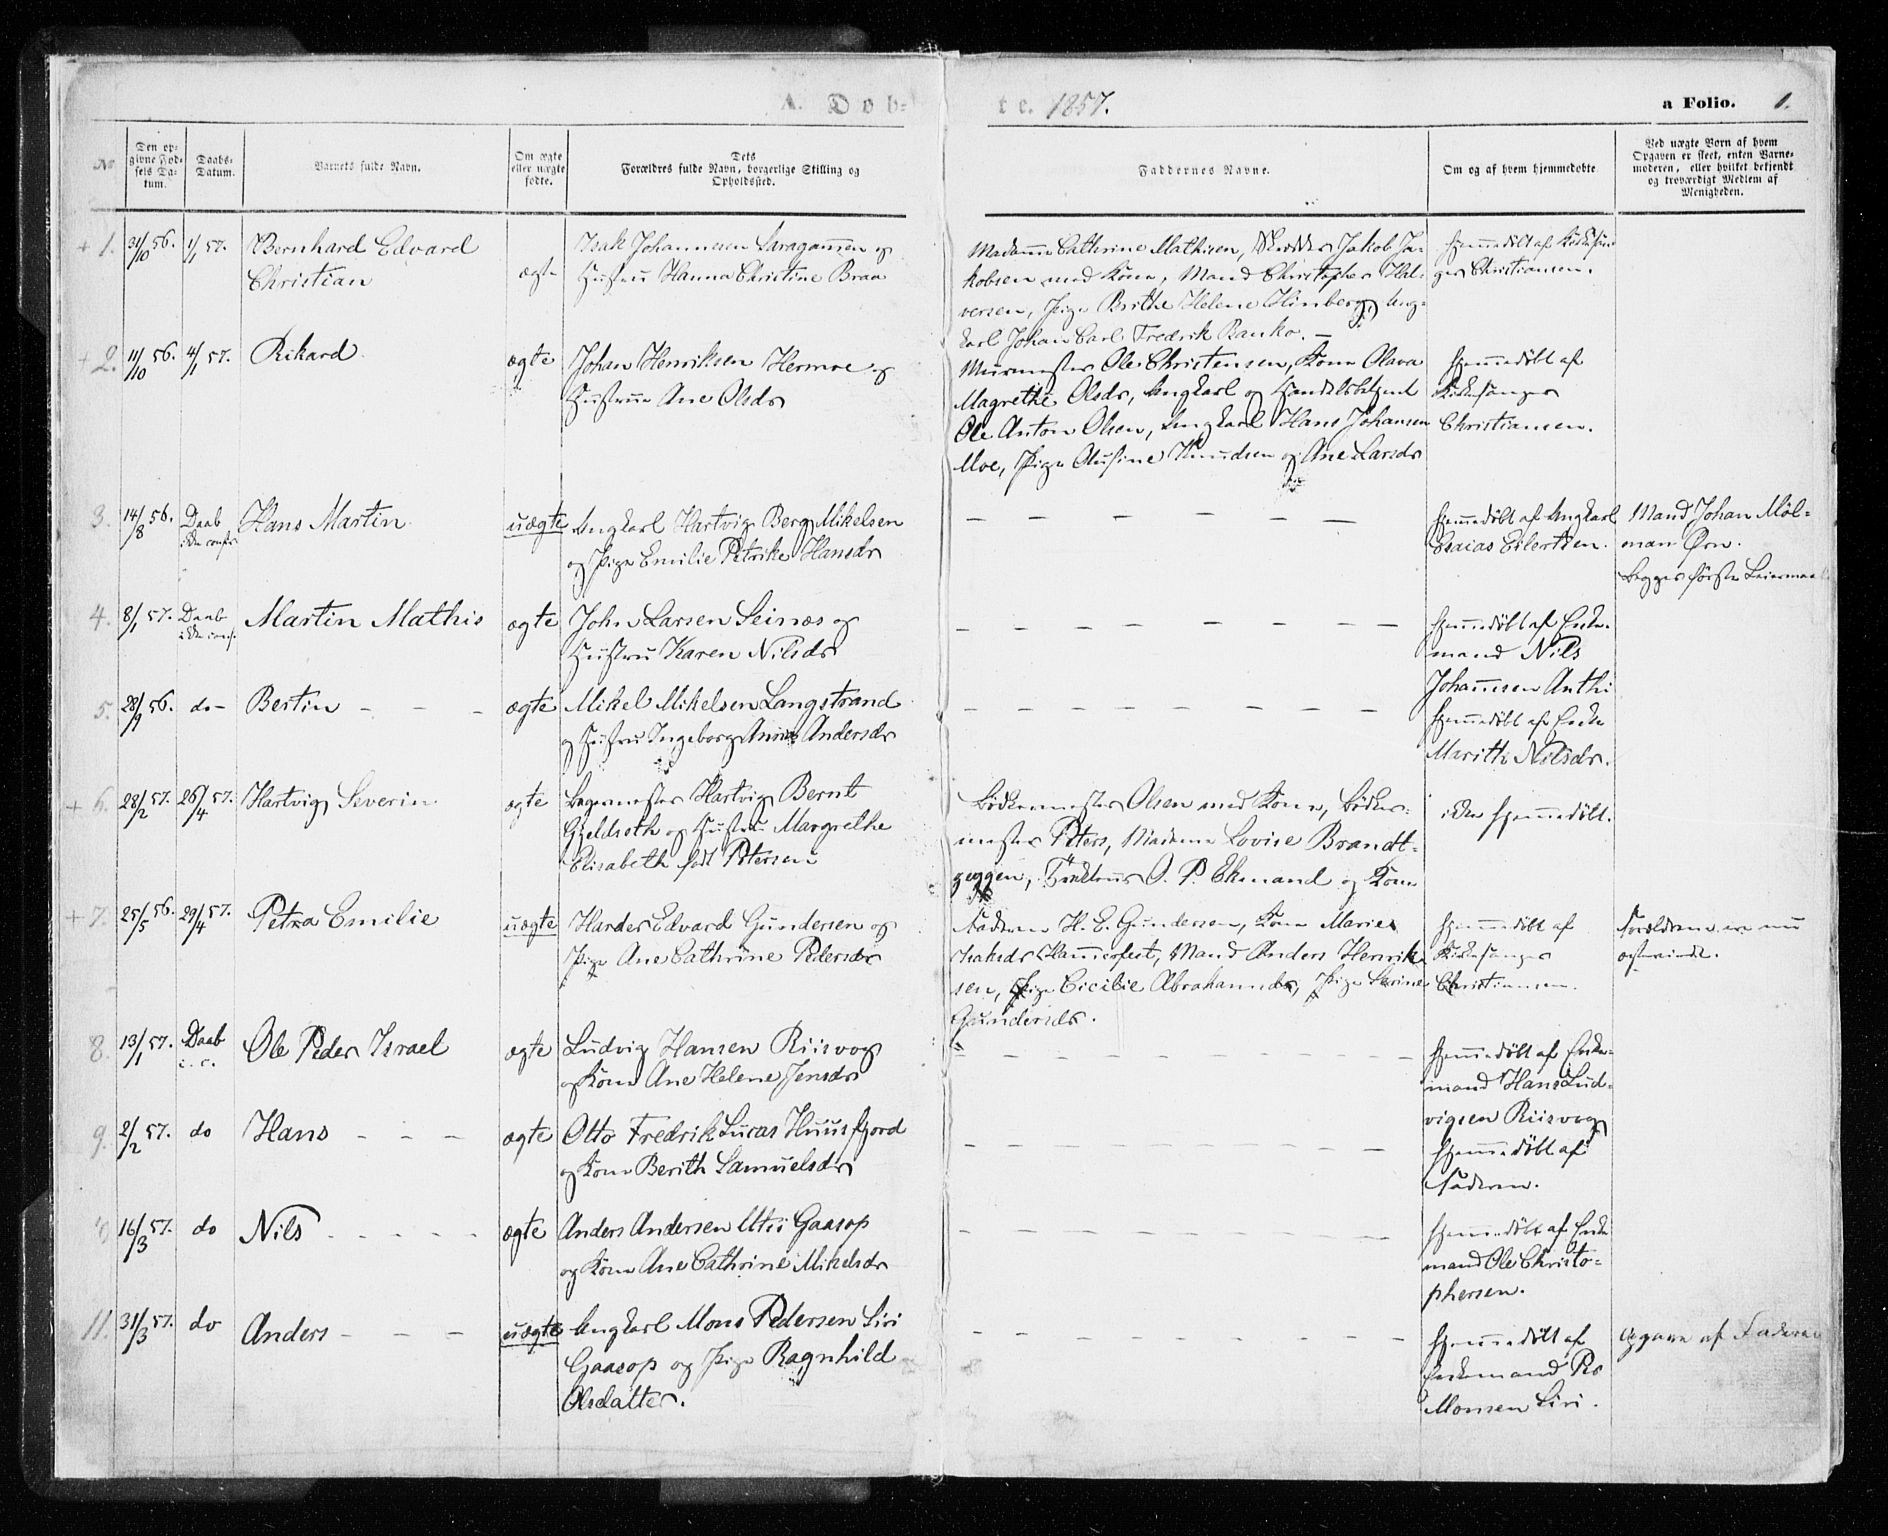 A. Dob=
te. 1857.
a Folio. 1.
No
Den op-
givne Fød-
sels Da-
tum.
Daabs-
Datum.
Barnets fulde Navn.
Om ægte
eller uægte
fødte.
Dets
Forældres fulde Navn, borgerlige Stilling og
Opholdssted.
Faddernes Navne.
Om og af hvem hjemmedøbte
Ved uægte Børn af hvem
Opgaven er skeet, enten Barne-
moderen, eller hvilket bekjendt
og troværdigt Medlem af
Menigheden.
+ 1. 31/10 56. 1/1 57. Bernhard Edvard
Christian
ægte
Isak Johannesen Saragammen og
Hustru Hanna Christine Braa
Madame Cathrine Mathisen, Jakob Ja-
kobsen med Kone, Mand Christopher Hal-
versen, Pige Brithe Helene Himberg, Ung-
karl Johan Carl Fredrik Banko. —
Hjemmedøbt af Kirkesan
ger Christiansen.
+ 2. 11/10 56. 4/1 57. Rikard
ægte
Johan Henriksen Hermoe og
Hustrue Ane Olsdr
Murmester Ole Christensen, Kone Olava
Magrethe Olsdr, Ungkarl og Handelsbetjent
Ole Anton Olsen, Ungkarl Hans Johansen
Moe, Pige Olusine Knudsen og Ane Larsdr
Hjemmedøbt af
Kirkesanger
Christiansen.
3. 14/8 56. Daab
ikke confr
Hans Martin
uægte
Ungkarl Hartvig Berg Mikelsen
og Pige Emilie Petrike Hansdr
— — — — — — — —
Hjemmedøbt af Ungkarl
Esaias Eilertsen.
Mand Johan Möl-
man Örn.
Begges første Leiermaal
4. 8/1 57. Daab
ikke conf.
Martin Mathis
ægte
John Larsen Seinæs og
Hustru Karen Nilsdr
— — — — — — — —
Hjemmedøbt af Enke-
mand Nils
Johannesen Anthi
5. 28/9 56. do — Bertin — — —
ægte
Mikel Mikelsen Langstrand
og Hustru Ingeborg Anne Andersdr
— — — — — — — —
Hjemmedøbt af Enke
Marith Nilsdr.
+ 6. 28/2 57. 26/4 57. Hartvig Severin
ægte
Bagermester Hartvig Bernt
Gjeldseth og Hustru Margrethe
Elisabeth født Petersen
Bødkermester Olsen med Kone, Bøder-
mester Peters, Madame Lovise Brandt-
geggen, O. P. Ekmand og Kone
ikke hjemmedøbt.
+ 7. 25/5 56. 29/4 57. Petra Emilie
uægte
Harder Edvard Gundersen og
Pige Ane Cathrine Pedersdr
Faderen H. E. Gundersen, Kone Marie
Isaksdr Hammerfest, Mand Anders Henrik
sen, Pige Cicilie Abrahamsdr, Pige Serine
Gundersdr.
Hjemmedøbt af
Kirkesanger
Christiansen.
Forældrene ere nu
ægteviede.
8. 13/1 57. Daab
i. c.
Ole Peder Israel
ægte
Ludvig Hansen Riisvog
og Kone Ane Helene Jensdr
— — — — — — — —
Hjemmedøbt af Enke-
mand Hans Lud-
vigsen Riisvog
9. 2/2 57. do Hans — — —
ægte
Otto Fredrik Lucas Huusfjord
og Kone Berith Samuelsdr
— — — — — — — —
Hjemmedøbt af
Faderen.
10 16/3 57. do Nils — — — —
ægte
Anders Andersen Utsi Gaasop
og Kone Ane Cathrine Mikelsdr
— — — — — — — —
Hjemmedøbt af Enke
mand Ole Christo-
phersen.
11. 31/3 57. do Anders — — —
uægte
Ungkarl Mons Pedersen Siri
Gaasop og Pige Ragnhild
Olsdatter.
— — — — — — — —
Hjemmedøbt af
Enkemand Per
Monsen Siri.
Opgave af Faderen